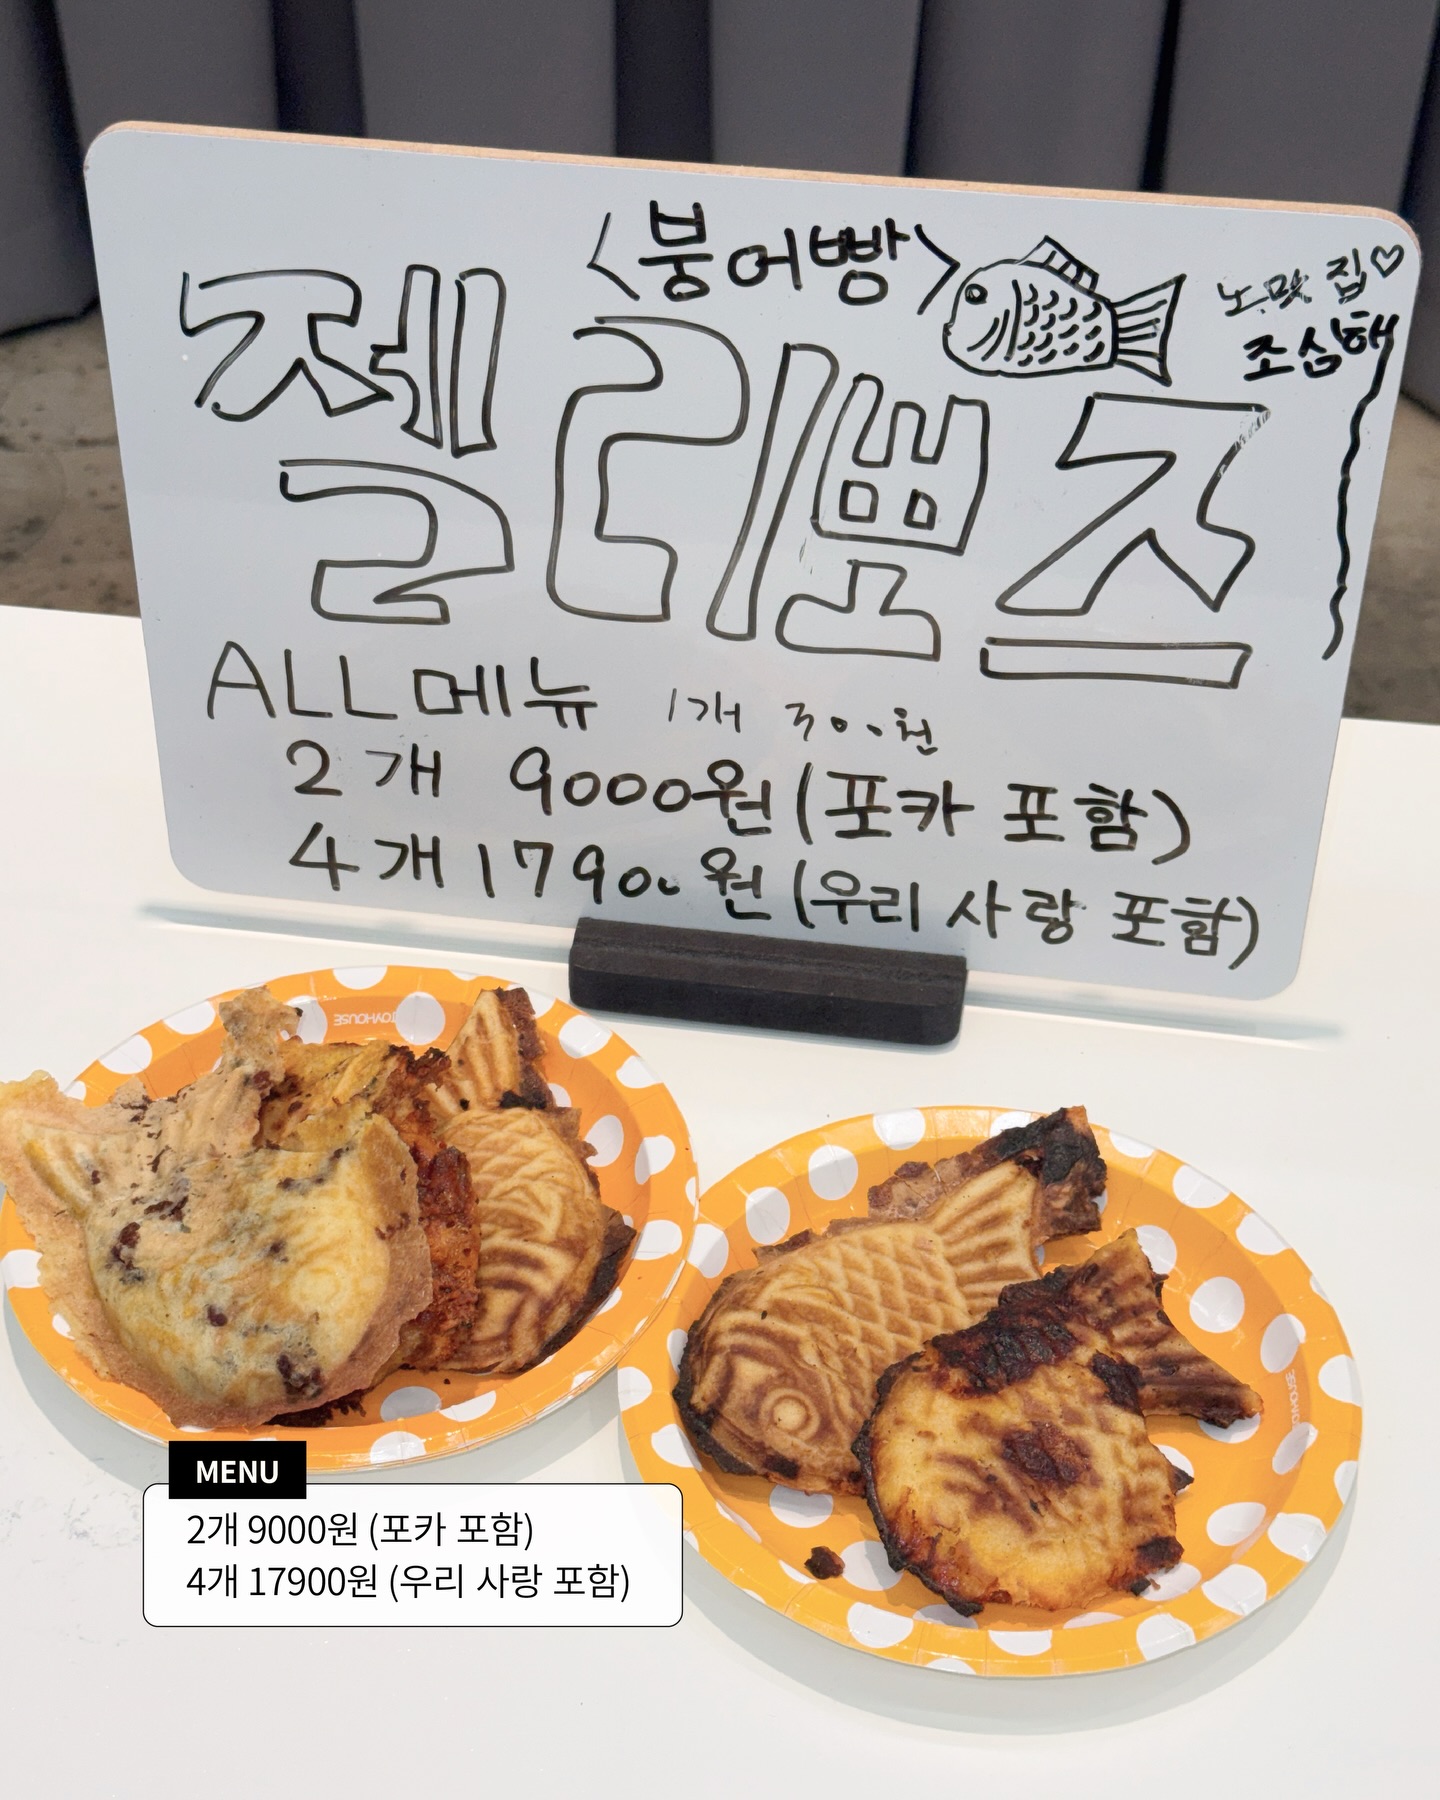 <붕어빵>
노맛 집♡
조심해
젤리뽀즈
ALL 메뉴 1개 300원
2개 9000원 (포카 포함)
4개 17900원 (우리 사랑 포함)
TOYHOUSE
TOYHOUSE
MENU
2개 9000원 (포카 포함)
4개 17900원 (우리 사랑 포함)